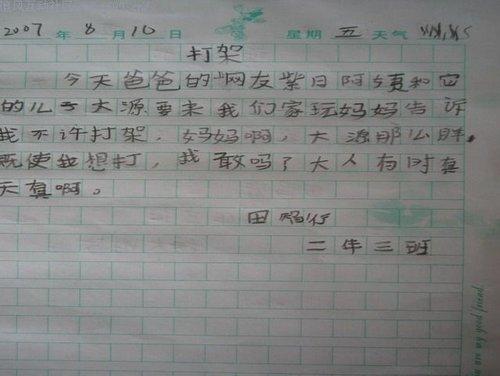 2007 年 8 月 10 日 星期 五 天气
打架
今天爸爸的网友紫日阿姨和它
的儿子大源要来我们家玩妈妈告诉
我不许打架，妈妈啊，大源那么胖，
既使我想打，我敢吗？大人有时真
天真啊。
田
二年三班
my good friend.